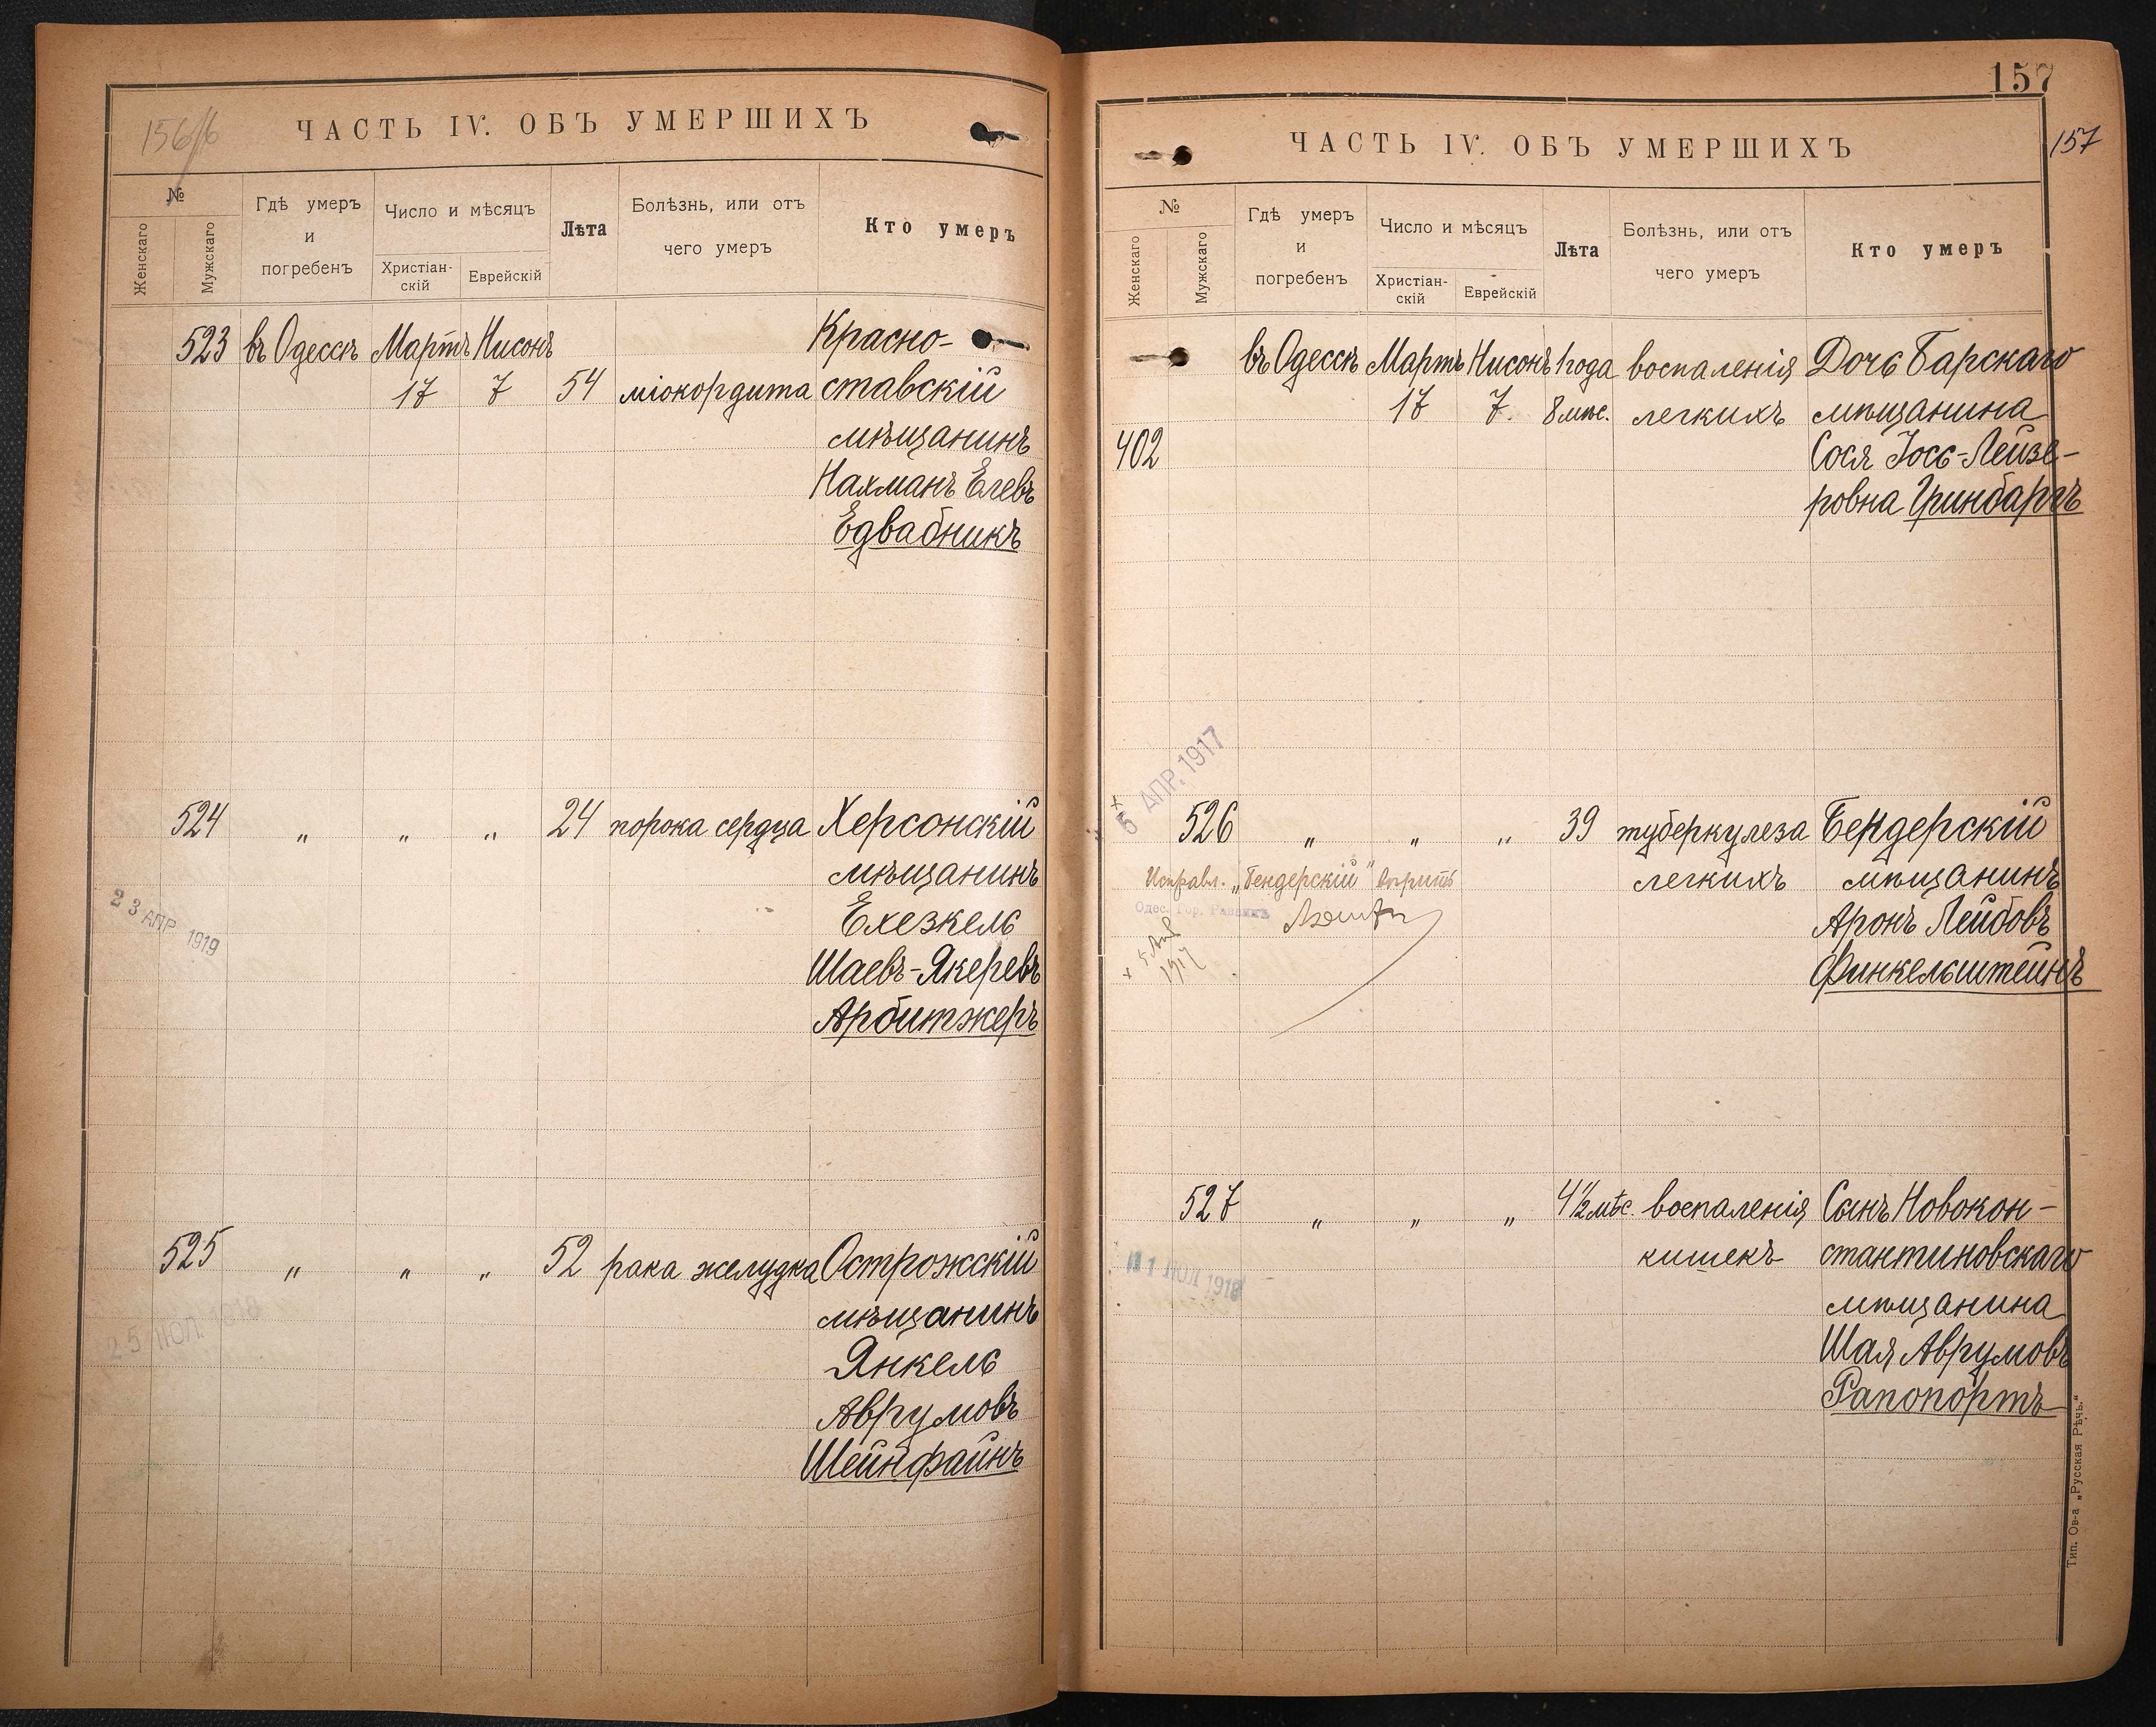 156
ЧАСТЬ IV. ОБЪ УМЕРШИХЪ
№
Женскаго
Мужскаго
Гдѣ умеръ
и
погребенъ
Число и мѣсяцъ
Христіан-
скій
Еврейскій
Лѣта
Болѣзнь, или отъ
чего умеръ
Кто умеръ
523 въ Одессѣ Мартъ Нисонъ Красно-
17 7 54 міокордита ставскій
мѣщанинъ
Нахманъ Елевъ
Едвабникъ
524 „ „ „ 24 порока сердца Херсонскій
мѣщанинъ
23 АПР 1919
Ехезкель
Шаевъ-Якеревъ
Арбитжеръ
525 „ „ „ 52 рака желудка Острожскій
25 ІЮЛ 1918
мѣщанинъ
Янкель
Аврумовъ
Шейнфайнъ
157
157
ЧАСТЬ IV. ОБЪ УМЕРШИХЪ
№
Женскаго
Мужскаго
Гдѣ умеръ
и
погребенъ
Число и мѣсяцъ
Христіан-
скій
Еврейскій
Лѣта
Болѣзнь, или отъ
чего умеръ
Кто умеръ
въ Одессѣ Мартъ Нисонъ 1 года воспаленія Дочь Барскаго
17 7. 8 мѣс. легкихъ мѣщанина
402 Сося Іось-Лейзе-
ровна Гринбаргъ
5 АПР. 1917
526 „ „ „ 39 туберкулеза Бендерскій
Исправл. „Бендерскій" вѣрить легкихъ мѣщанинъ
Одес. Гор. Раввинъ
Аронъ Лейбовъ
Финкельштейнъ
527 „ „ „ 4½ мѣс. воспаленія Сынъ Новокон-
11 ІЮЛ 1918
кишекъ стантиновскаго
мѣщанина
Шая Аврумовъ
Рапопортъ
Тип. Ов-а „Русская Рѣчь."